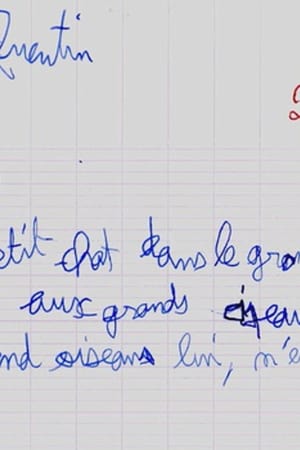 Quentin
etit chat dans le gran
aux grands oiseau
and oiseaus lui, n'e